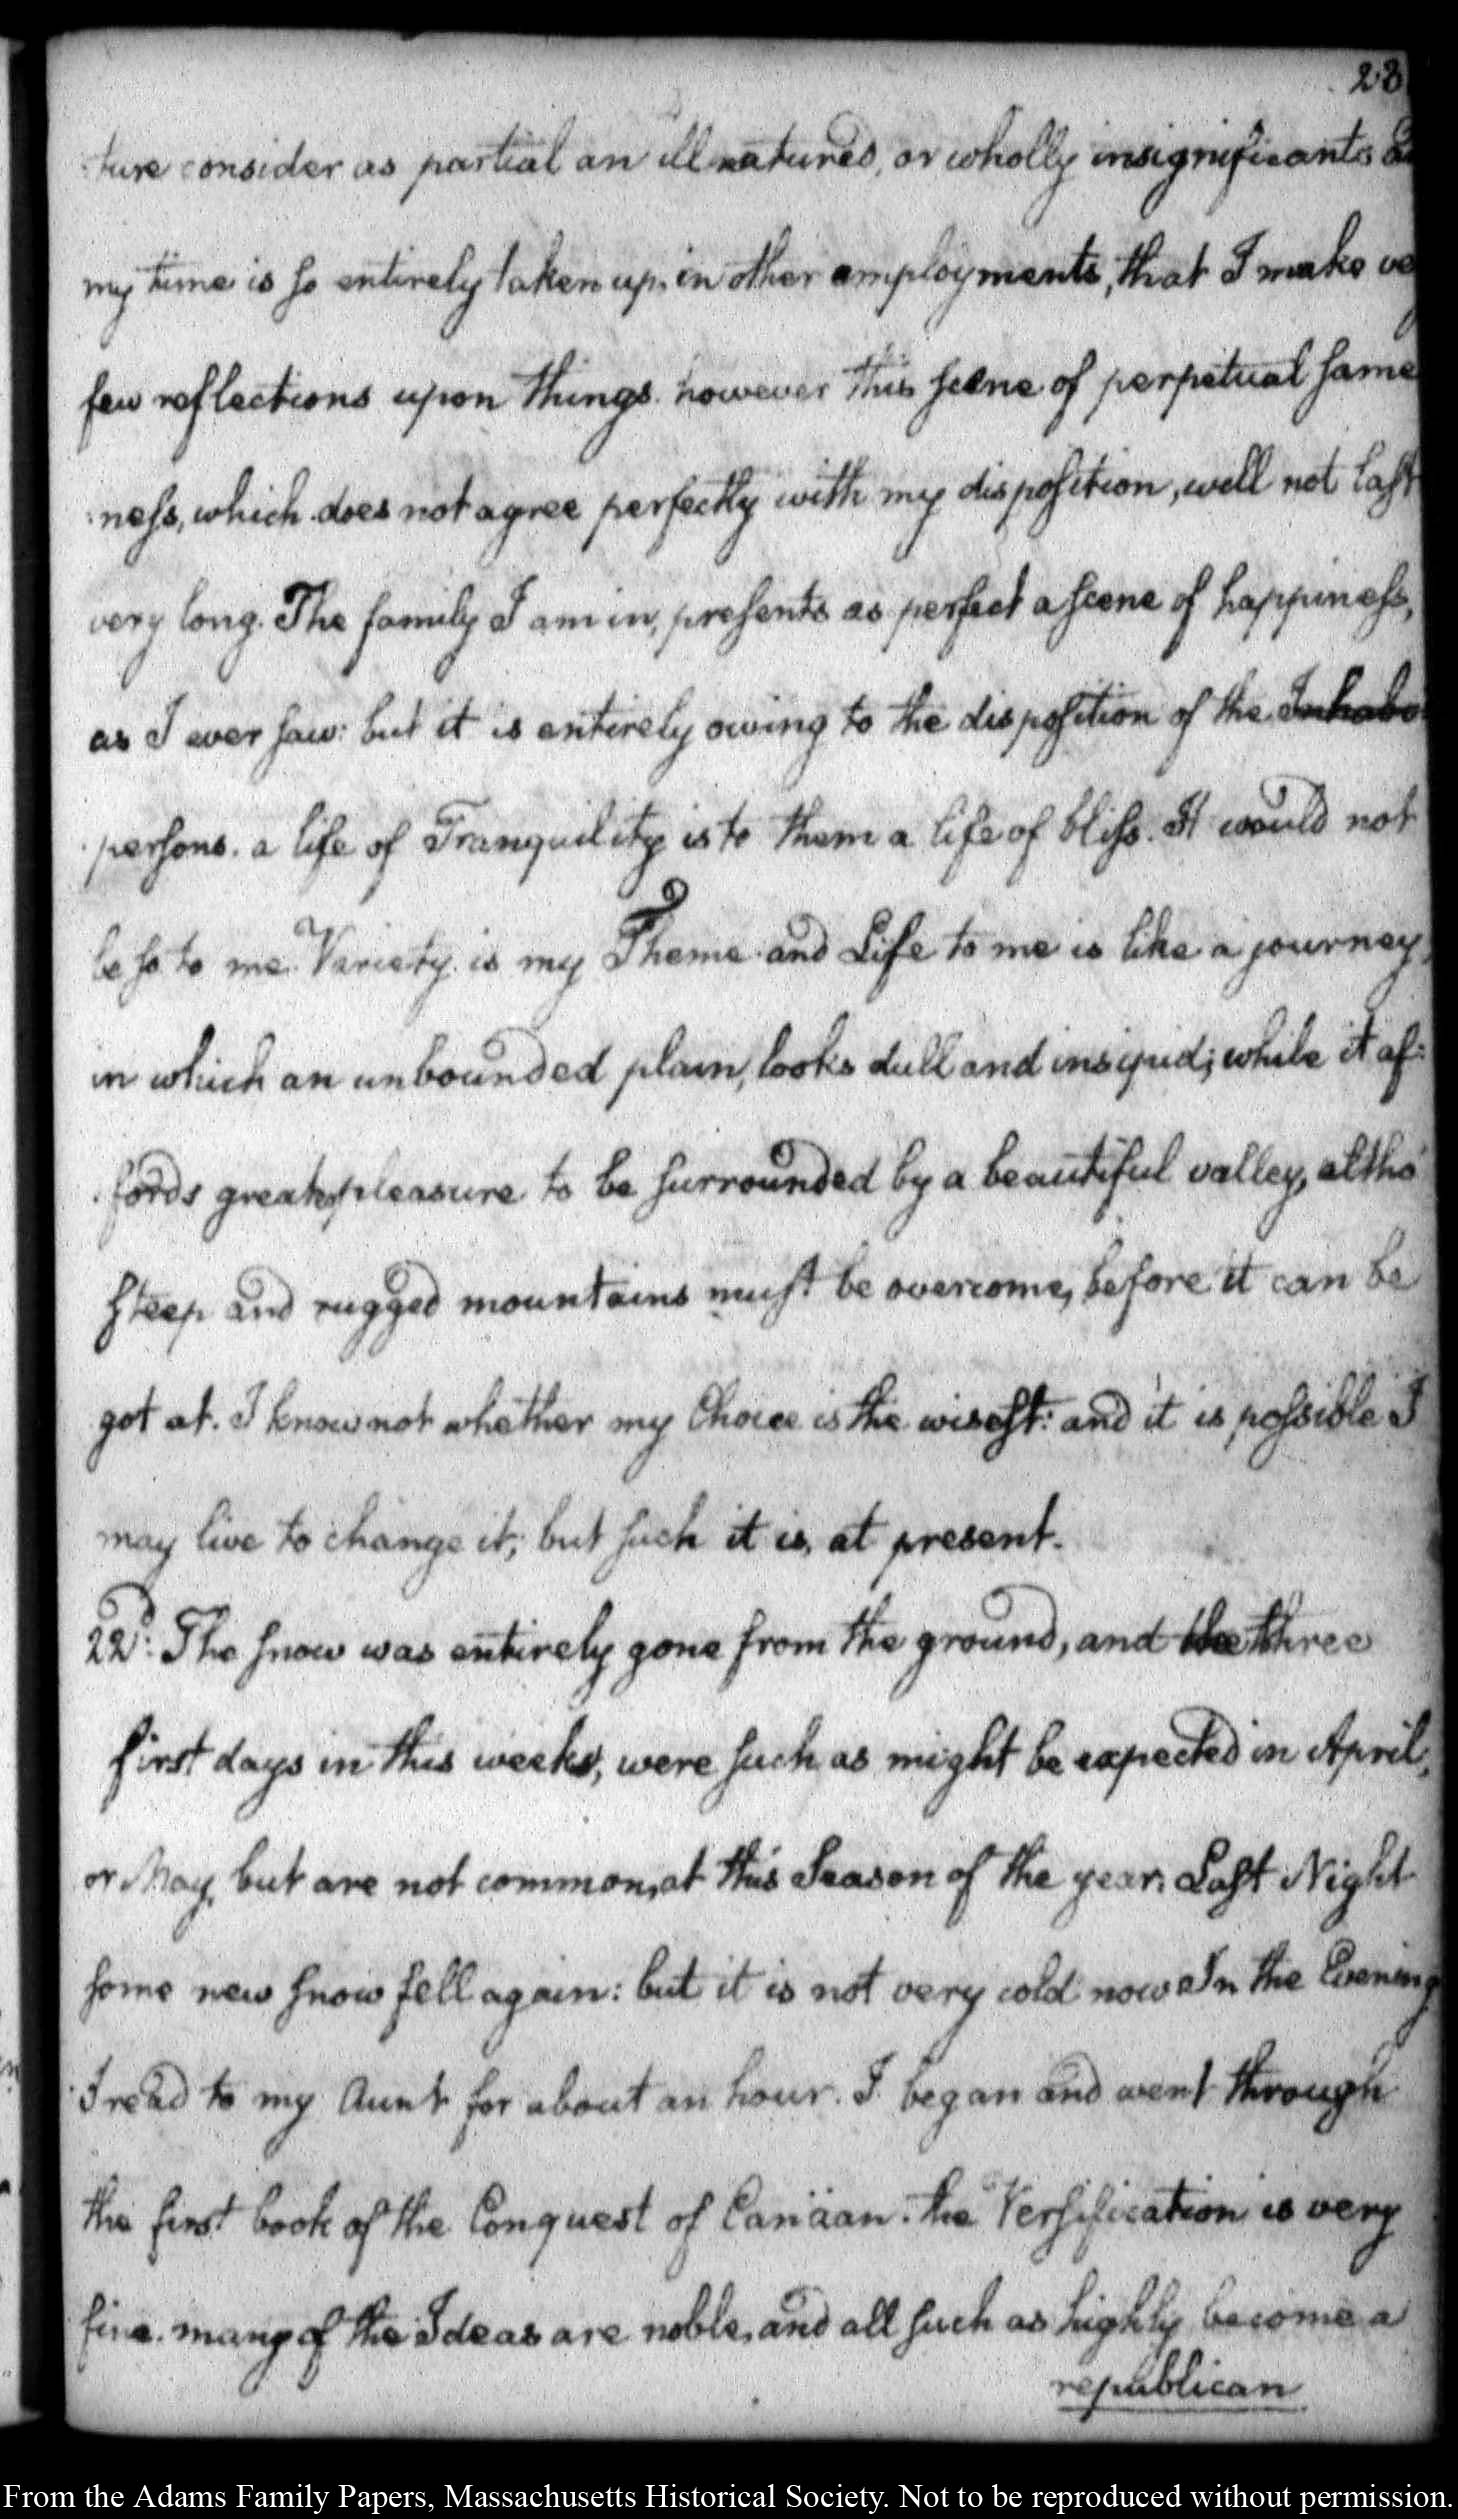 28
ture consider as partial an illnatured, or wholly insignificant.
my time is so entirely taken up, in other employments, that I make ve
few reflections upon things. however this scene of perpetual same
ness, which does not agree perfectly with my disposition, will not last
very long. The family I am in, presents as perfect a scene of happiness,
as I ever saw: but it is entirely owing to the disposition of the Inhabi
persons. a life of Tranquility is to them a life of bliss. It would not
be so to me. Variety is my Theme. and Life to me is like a journey,
in which an unbounded plain, looks dull and insipid; while it af:
fords great pleasure to be surrounded by a beautiful valley, altho'
steep and rugged mountains must be overcome, before it can be
got at. I know not whether my Choice is the wisest: and it is possible I
may live to change it; but such it is, at present.
22d: The snow was entirely gone from the ground, and the three
first days in this week, were such as might be expected in April,
or May, but are not common, at this Season of the year. Last Night
some new snow fell again: but it is not very cold now. In the Evening
I read to my Aunt for about an hour. I began and went through
the first book of the Conquest of Canäan. the Versification is very
fine. many of the Ideas are noble, and all such as highly become a
republican
From the Adams Family Papers, Massachusetts Historical Society. Not to be reproduced without permission.